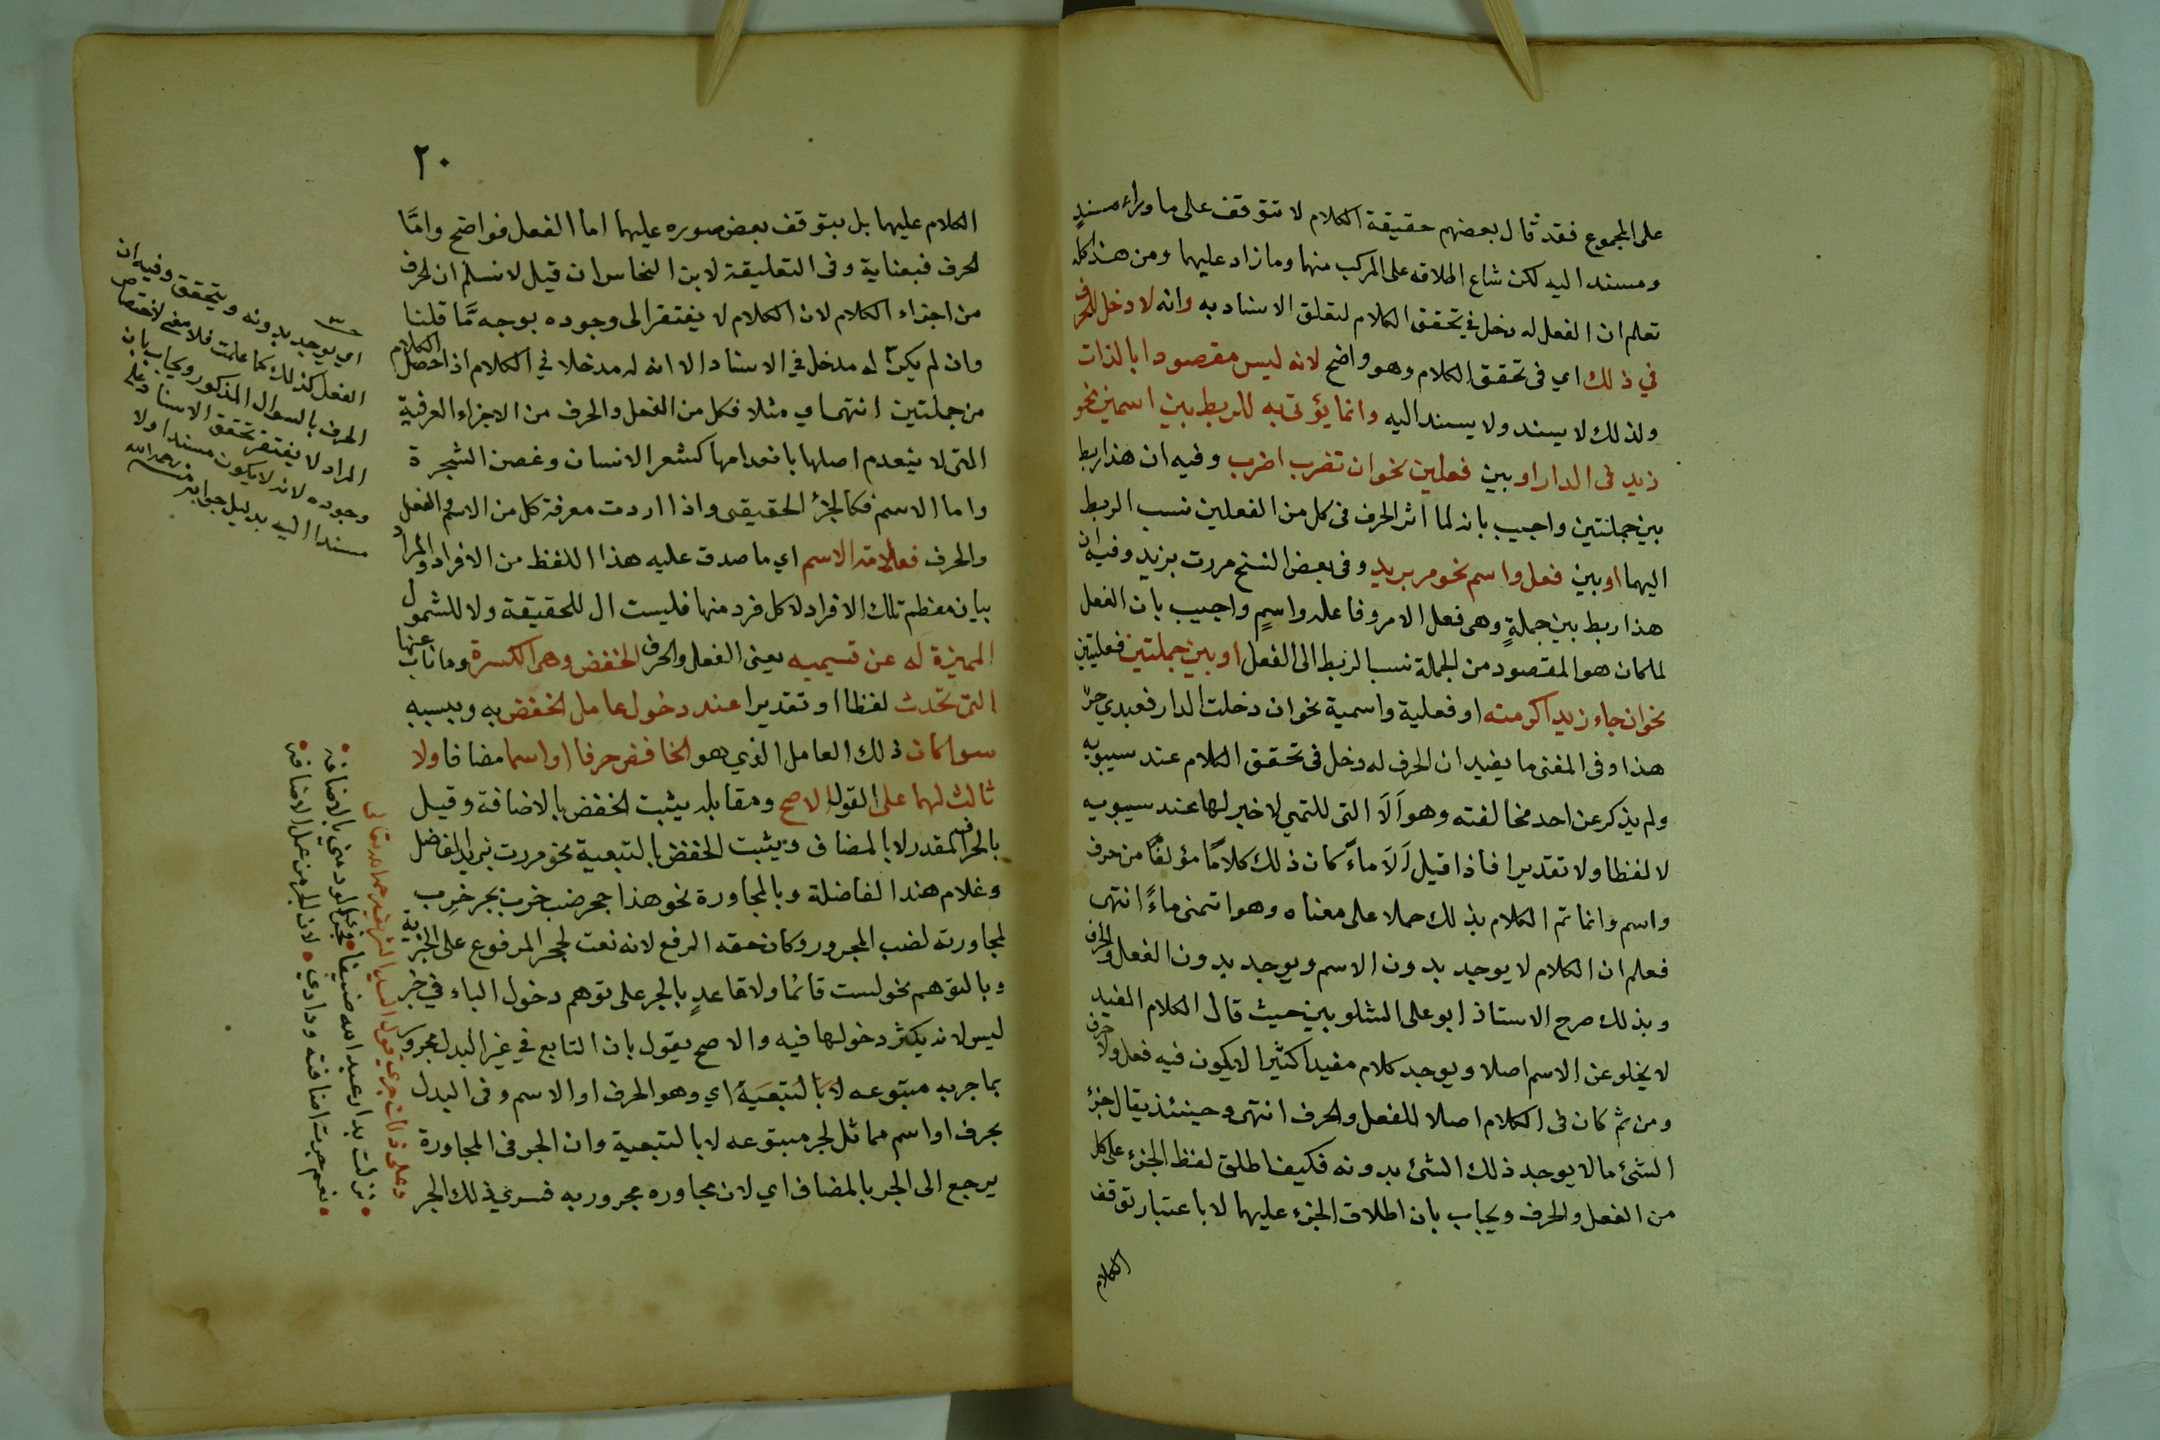 على المجموع فقد قال بعضهم حقيقة الكلام لا تتوقف على ما وراء مسند
ومسند اليه لكن شاع اطلاقه على المركب منهما وما زاد عليهما ومن هذا كله
تعلم ان الفعل له دخل في تحقق الكلام لتعلق الاسناد به وانه لا دخل للحرف
في ذلك اي في تحقق الكلام وهو واضح لانه ليس مقصودا بالذات
ولذلك لا يسند ولا يسند اليه وانما يؤتى به للربط بين اسمين نحو
زيد في الدار او بين فعلين نحو ان تضرب اضرب وفيه ان هذا ربط
بين جملتين واجيب بانه لما اثر الحرف في كل من الفعلين نسب الربط
اليهما او بين فعل واسم نحو مر بزيد وفي بعض النسخ مررت بزيد وفيه ان
هذا ربط بين جملةٍ وهي فعل الامر وفاعله واسمٍ واجيب بان الفعل
لما كان هو المقصود من الجملة نسب الربط الى الفعل او بين جملتين فعليتين
نحو ان جاء زيد اكرمته او فعلية واسمية نحو ان دخلت الدار فعبدي حرّ
هذا وفي المغني ما يفيد ان الحرف له دخل في تحقق الكلام عند سيبويه
ولم يذكر عن احد مخالفته وهو اَلَا التي للتمني لا خبر لها عند سيبويه
لا لفظا ولا تقديرا فاذا قيل اَلَا ماءً كان ذلك كلامًا مؤلفًا من حرف
واسم وانما تم الكلام بذلك حملا على معناه وهو اتمنى ماءً انتهى
فعلم ان الكلام لا يوجد بدون الاسم ويوجد بدون الفعل والحرف
وبذلك صرح الاستاذ ابو على الشلوبين حيث قال الكلام المفيد
لا يخلو عن الاسم اصلا ويوجد كلام مفيدا كثيرا لا يكون فيه فعل ولا حرف
ومن ثم كان في الكلام اصلا للفعل والحرف انتهى وحينئذ يقال جزؤ
الشئ ما لا يوجد ذلك الشئ بدونه فكيف اطلق لفظ الجزء على كل
من الفعل والحرف ويجاب بان اطلاق الجزء عليهما لا باعتبار توقف
الكلام
٢٠
الكلام عليهما بل يتوقف بعض صوره عليهما اما الفعل فواضح وامَّا
الحرف فبعناية وفي التعليقة لابن النحاس ان قيل لا نسلم ان الحرف
من اجزاء الكلام لان الكلام لا يفتقر الى وجوده بوجه مَّا قلنا
وان لم يكن له مدخل في الاسناد الا انه له مدخلا في الكلام اذا حصل الكلام
من جملتين انتهى اي مثلا فكل من الفعل والحرف من الاجزاء العرفية
التى لا ينعدم اصلها بانعدامها كشعر الانسان وغصن الشجرة
واما الاسم فكالجزء الحقيقى واذا اردت معرفة كل من الاسم والفعل
والحرف فعلامة الاسم اي ما صدق عليه هذا اللفظ من الافراد والمراد
بيان معظم تلك الافراد لا كل فرد منها فليست ال للحقيقة ولا للشمول
المميزة له عن قسيميه يعنى الفعل والحرف الخفض وهى الكسرة وما ناب عنها
التى تحدث لفظا او تقديرا عند دخول عامل الخفض به وبسببه
سوا كان ذلك العامل الذي هو الخافض حرفا او اسما مضافا ولا
ثالث لهما على القول الاصح ومقابله يثبت الخفض بالاضافة وقيل
بالحرف المقدر لا بالمضاف ويثبت الخفض بالتبعية نحو مررت بزيد الفاضل
وغلام هند الفاضلة وبالمجاورة نحو هذا جحر ضب خرب بجر خرِب
لمجاورته لضب المجرور وكان حقه الرفع لانه نعت لجحر المرفوع على الخبرية
وبالتوهم نحو لست قائما ولا قاعدٍ بالجر على توهم دخول الباء في خبر
ليس لانه يكثر دخولها فيه والاصح يقول بان التابع في غير البدل مجرور
بما جر به متبوعه لا بالتبعية اي وهو الحرف او الاسم وفي البدل
بحرف او اسم مماثل لجر متبوعه لا بالتبعية وان الجر في المجاورة
يرجع الى الجر بالمضاف اي لان مجاوره مجرور به فسرى ذلك الجر
اي يوجد بدونه ويتحقق وفيه ان
الفعل كذلك كما علمت فلا معنى لاختصاص
الحرف بالسوال المذكور ويجاب بان
المراد لا يفتقر تحقق الاسناد على
وجوده لانه لا يكون مسندا ولا
مسندا اليه بدليل جوابه رحمه الله
نزلت بدار عبد الله ضيفا
نعم جرت اضافته ودادي لان الجر من عمل الاضافه